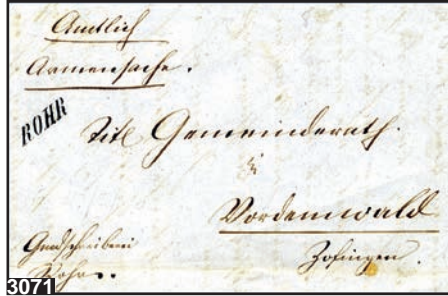 Amtlich
Armensache.
ROHR
Titl Gemeinderath.
in
Vordemwald
Zofingen.
Gmdschreiberei
Rohr
3071